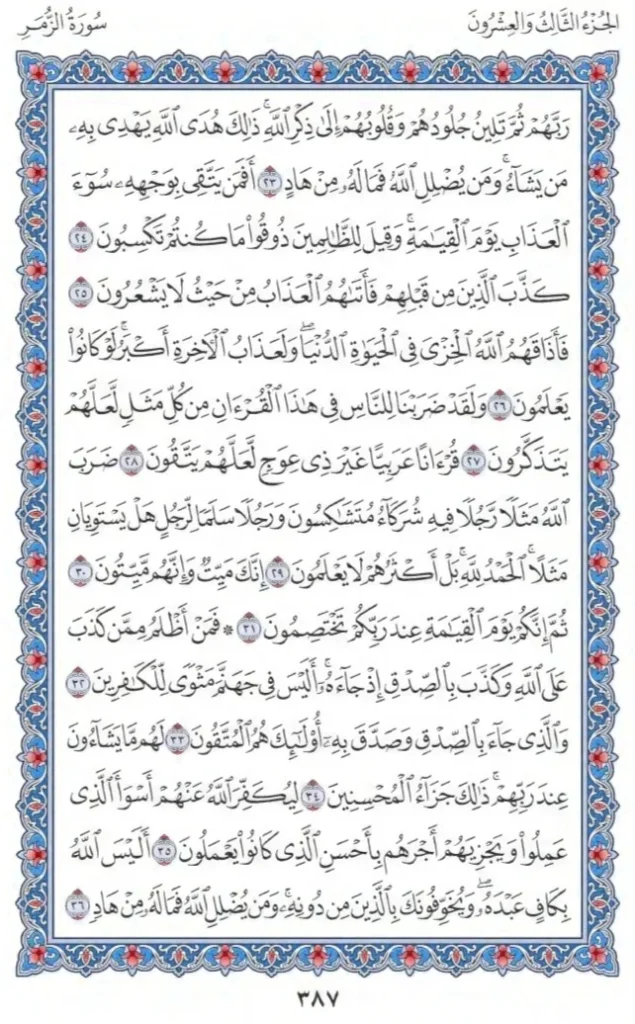 الجُزْءُ الثَّالِثُ وَالعِشْرُونَ
سُورَةُ الزُّمَرِ
رَبَّهُمْ ثُمَّ تَلِينُ جُلُودُهُمْ وَقُلُوبُهُمْ إِلَىٰ ذِكْرِ ٱللَّهِۚ ذَٰلِكَ هُدَى ٱللَّهِ يَهْدِى بِهِۦ
مَن يَشَآءُۚ وَمَن يُضْلِلِ ٱللَّهُ فَمَا لَهُۥ مِنْ هَادٍ ٢٣ أَفَمَن يَتَّقِى بِوَجْهِهِۦ سُوٓءَ
ٱلْعَذَابِ يَوْمَ ٱلْقِيَٰمَةِۚ وَقِيلَ لِلظَّٰلِمِينَ ذُوقُوا۟ مَا كُنتُمْ تَكْسِبُونَ ٢٤
كَذَّبَ ٱلَّذِينَ مِن قَبْلِهِمْ فَأَتَىٰهُمُ ٱلْعَذَابُ مِنْ حَيْثُ لَا يَشْعُرُونَ ٢٥
فَأَذَاقَهُمُ ٱللَّهُ ٱلْخِزْىَ فِى ٱلْحَيَوٰةِ ٱلدُّنْيَاۖ وَلَعَذَابُ ٱلْءَاخِرَةِ أَكْبَرُۚ لَوْ كَانُوا۟
يَعْلَمُونَ ٢٦ وَلَقَدْ ضَرَبْنَا لِلنَّاسِ فِى هَٰذَا ٱلْقُرْءَانِ مِن كُلِّ مَثَلٍ لَّعَلَّهُمْ
يَتَذَكَّرُونَ ٢٧ قُرْءَانًا عَرَبِيًّا غَيْرَ ذِى عِوَجٍ لَّعَلَّهُمْ يَتَّقُونَ ٢٨ ضَرَبَ
ٱللَّهُ مَثَلًا رَّجُلًا فِيهِ شُرَكَآءُ مُتَشَٰكِسُونَ وَرَجُلًا سَلَمًا لِّرَجُلٍ هَلْ يَسْتَوِيَانِ
مَثَلًاۚ ٱلْحَمْدُ لِلَّهِۚ بَلْ أَكْثَرُهُمْ لَا يَعْلَمُونَ ٢٩ إِنَّكَ مَيِّتٌ وَإِنَّهُم مَّيِّتُونَ ٣٠
ثُمَّ إِنَّكُمْ يَوْمَ ٱلْقِيَٰمَةِ عِندَ رَبِّكُمْ تَخْتَصِمُونَ ٣١ * فَمَنْ أَظْلَمُ مِمَّن كَذَبَ
عَلَى ٱللَّهِ وَكَذَّبَ بِٱلصِّدْقِ إِذْ جَآءَهُۥٓۚ أَلَيْسَ فِى جَهَنَّمَ مَثْوًى لِّلْكَٰفِرِينَ ٣٢
وَٱلَّذِى جَآءَ بِٱلصِّدْقِ وَصَدَّقَ بِهِۦٓۙ أُو۟لَٰٓئِكَ هُمُ ٱلْمُتَّقُونَ ٣٣ لَهُم مَّا يَشَآءُونَ
عِندَ رَبِّهِمْۚ ذَٰلِكَ جَزَآءُ ٱلْمُحْسِنِينَ ٣٤ لِيُكَفِّرَ ٱللَّهُ عَنْهُمْ أَسْوَأَ ٱلَّذِى
عَمِلُوا۟ وَيَجْزِيَهُمْ أَجْرَهُم بِأَحْسَنِ ٱلَّذِى كَانُوا۟ يَعْمَلُونَ ٣٥ أَلَيْسَ ٱللَّهُ
بِكَافٍ عَبْدَهُۥۖ وَيُخَوِّفُونَكَ بِٱلَّذِينَ مِن دُونِهِۦۚ وَمَن يُضْلِلِ ٱللَّهُ فَمَا لَهُۥ مِنْ هَادٍ ٣٦
٣٨٧